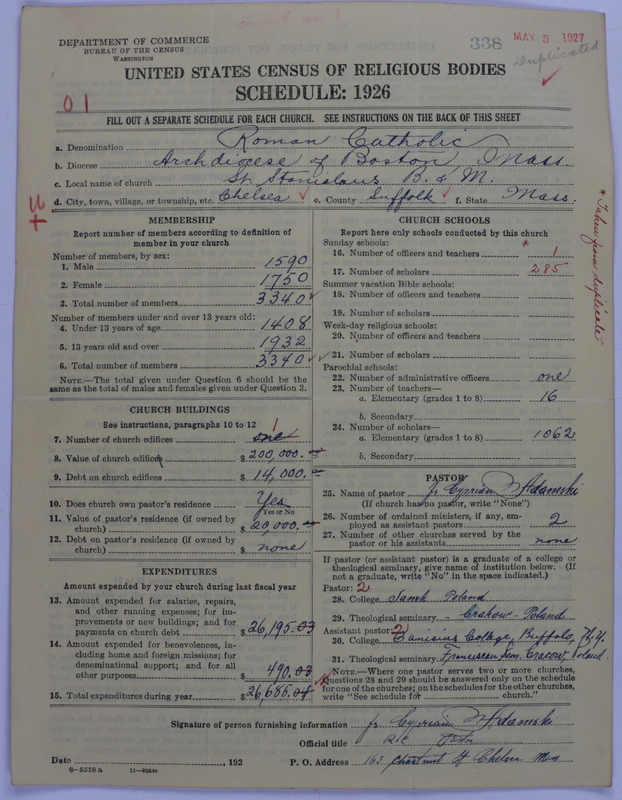 DEPARTMENT OF COMMERCE
BUREAU OF THE CENSUS
WASHINGTON
338
MAY 5 1927
Duplicated
UNITED STATES CENSUS OF RELIGIOUS BODIES
SCHEDULE: 1926
01
FILL OUT A SEPARATE SCHEDULE FOR EACH CHURCH. SEE INSTRUCTIONS ON THE BACK OF THIS SHEET
a. Denomination Roman Catholic
b. Diocese Archdiocese of Boston, Mass
c. Local name of church St. Stanislaus B. & M.
d. City, town, village, or township, etc. Chelsea e. County Suffolk f. State Mass.
MEMBERSHIP
Report number of members according to definition of
member in your church
Number of members, by sex:
1. Male 1590
2. Female 1750
3. Total number of members 3340
Number of members under and over 13 years old:
4. Under 13 years of age 1408
5. 13 years old and over 1932
6. Total number of members 3340
NOTE.—The total given under Question 6 should be the
same as the total of males and females given under Question 3.
CHURCH BUILDINGS
See instructions, paragraphs 10 to 12
7. Number of church edifices one 1
8. Value of church edifices $200,000.
9. Debt on church edifices $14,000.
10. Does church own pastor's residence Yes
Yes or No
11. Value of pastor's residence (if owned by
church) $20,000.
12. Debt on pastor's residence (if owned by
church) $none
EXPENDITURES
Amount expended by your church during last fiscal year
13. Amount expended for salaries, repairs,
and other running expenses; for im-
provements or new buildings; and for
payments on church debt $26,195.03
14. Amount expended for benevolences, in-
cluding home and foreign missions; for
denominational support; and for all
other purposes 490.03
15. Total expenditures during year $26,685.04
CHURCH SCHOOLS
Report here only schools conducted by this church
Sunday schools:
16. Number of officers and teachers * 1
17. Number of scholars 285
Summer vacation Bible schools:
18. Number of officers and teachers
19. Number of scholars
Week-day religious schools:
20. Number of officers and teachers
21. Number of scholars
Parochial schools:
22. Number of administrative officers one
23. Number of teachers—
a. Elementary (grades 1 to 8) 16
b. Secondary
24. Number of scholars—
a. Elementary (grades 1 to 8) 1062
b. Secondary
* Taken from duplicate
PASTOR
25. Name of pastor fr. Cyprian Adamski
(If church has no pastor, write "None")
26. Number of ordained ministers, if any, em-
ployed as assistant pastors 2
27. Number of other churches served by the
pastor or his assistants none
If pastor (or assistant pastor) is a graduate of a college or
theological seminary, give name of institution below. (If
not a graduate, write "No" in the space indicated.)
Pastor: 2
28. College Sanok Poland
29. Theological seminary Crakow-Poland
Assistant pastor: 2
30. College Canisius College, Buffalo, N.Y.
31. Theological seminary Franciscan Sem. Cracow, Poland.
NOTE.—Where one pastor serves two or more churches,
Questions 28 and 29 should be answered only on the schedule
for one of the churches; on the schedules for the other churches,
write "See schedule for church."
Signature of person furnishing information fr. Cyprian Adamski
Official title R.C.
Date , 192 P. O. Address 163 Chestnut St Chelsea Mass
8—5518a 11—9034